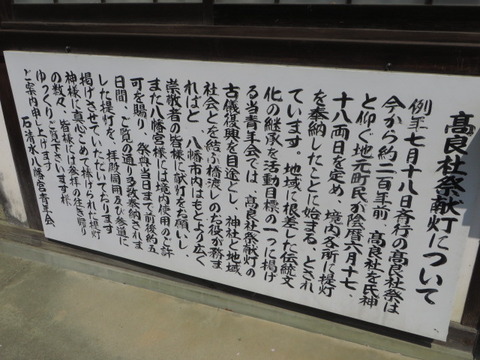 高良社祭献灯について
例年七月十八日斉行の高良社祭は
今から約二百年前、高良社を氏神
と仰ぐ地元町民が陰暦六月十七、
十八両日を定め、境内各所に提灯
を奉納したことに始まる、とされ
ています。地域に根差した伝統文
化の継承を活動目標の一つに掲げ
る当青年会では、高良社祭献灯の
古儀復興を目途とし、神社と地域
社会とを結ぶ橋渡しのお役が務ま
ればと、八幡市内はもとより広く
崇敬者の皆様に献灯をお願いし、
また八幡宮様には境内使用のご許
可を賜り、祭典当日まで前後約五
日間、ご覧の通り多数奉納されま
した提灯を、拝殿周囲及び参道に
掲げさせていただいております
神様に真心こめて捧げられた提灯
の数々、皆様には参拝の往き帰り
ゆっくりとご覧下さいます様、
ご案内申し上げます
石清水八幡宮青年会